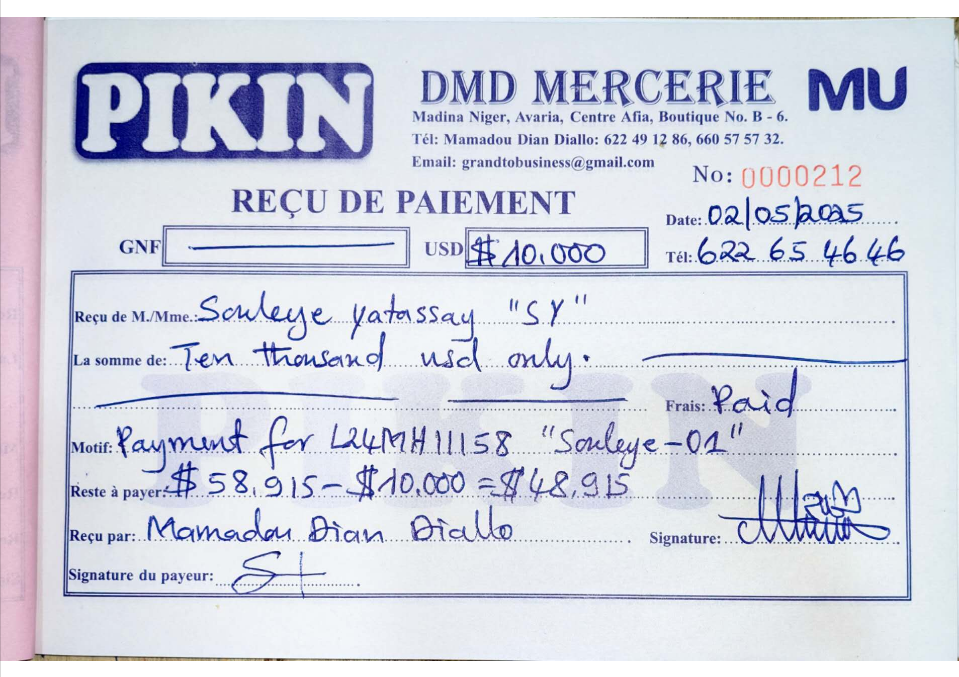 PIKIN
DMD MERCERIE
MU
Madina Niger, Avaria, Centre Afia, Boutique No. B - 6.
Tél: Mamadou Dian Diallo: 622 49 12 86, 660 57 57 32.
Email: grandtobusiness@gmail.com
No: 0000212
REÇU DE PAIEMENT
Date: 02/05/2025
GNF
USD $ 10.000
Tél: 622 65 46 46
Reçu de M./Mme.: Souleye yatassay "SY"
La somme de: Ten thousand usd only.
Frais: Paid
Motif: Payment for L24MH11158 "Souleye-01"
Reste à payer: $ 58,915 - $10.000 = $48,915
Reçu par: Mamadou Dian Diallo
Signature:
Signature du payeur:
PIKIN